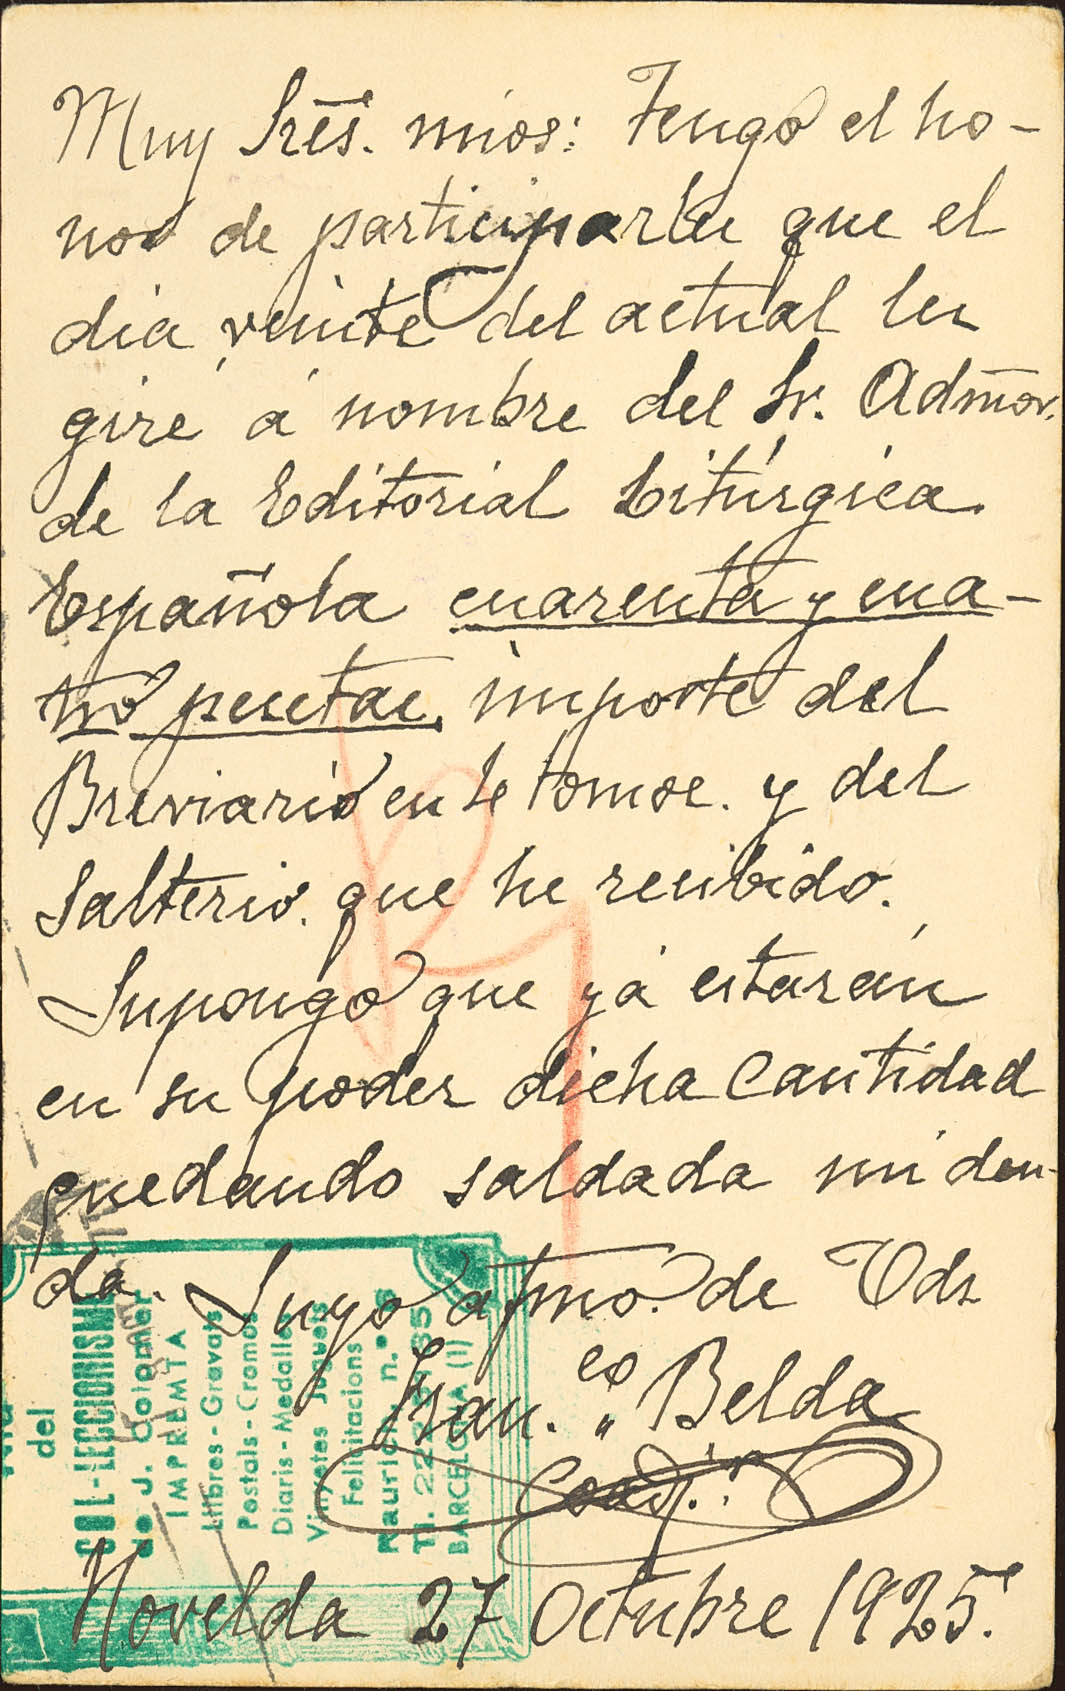 Muy Sres. mios: Tengo el ho-
nor de participarles que el
dia veinte del actual les
giré á nombre del Sr. Admor.
de la Editorial Litúrgica
Española cuarenta y cua-
tro pesetas, importe del
Breviario en 4 tomos. y del
Salterio. que he recibido.
Supongo que yá estarán
en su poder dicha Cantidad
quedando saldada mi deu-
da. Suyo afmo. de Vds
Fran.co Belda
Coadj.r
Novelda 27 Octubre 1925.
del
COL·LECCIONISME
de J. Colomer
IMPREMTA
Llibres - Gravats
Postals - Cromos
Diaris - Medalles
Vinyetes Jugues
Felicitacions
BARCELONA (1)